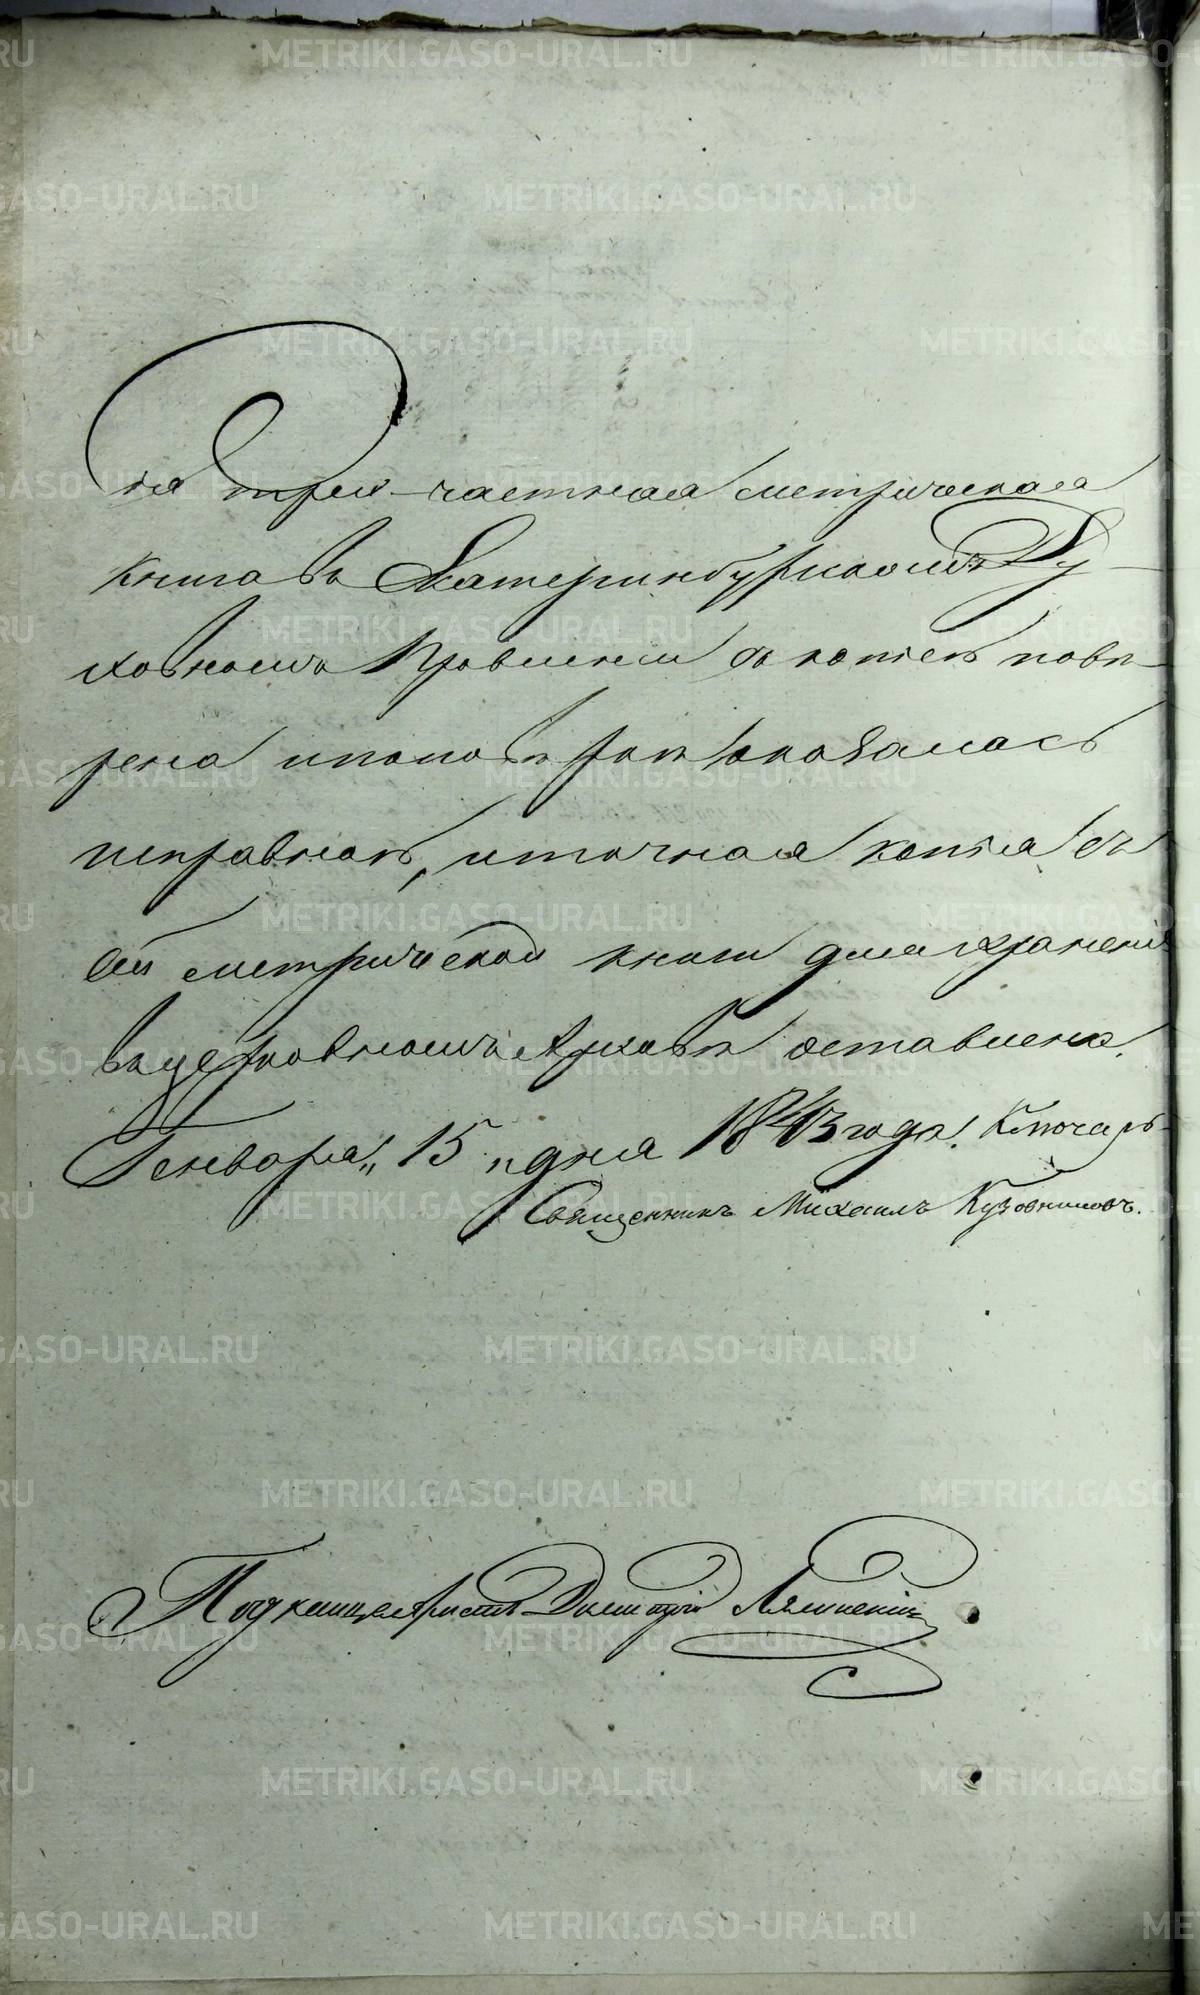 Сія трех-частная метрическая
книга въ Екатеринбургскомъ Ду-
ховномъ Правленіи съ копіею повѣ-
рена и по повѣркѣ оказалась
исправною, и точная копія съ
сей метрической книги для храненія
въ церковномъ Архивѣ оставлена.
Генваря „15„ дня 1843 года. Ключарь-
Священникъ Михаилъ Кузовниковъ.
Подканцеляристъ Дмитрій
METRIKI.GASO-URAL.RU